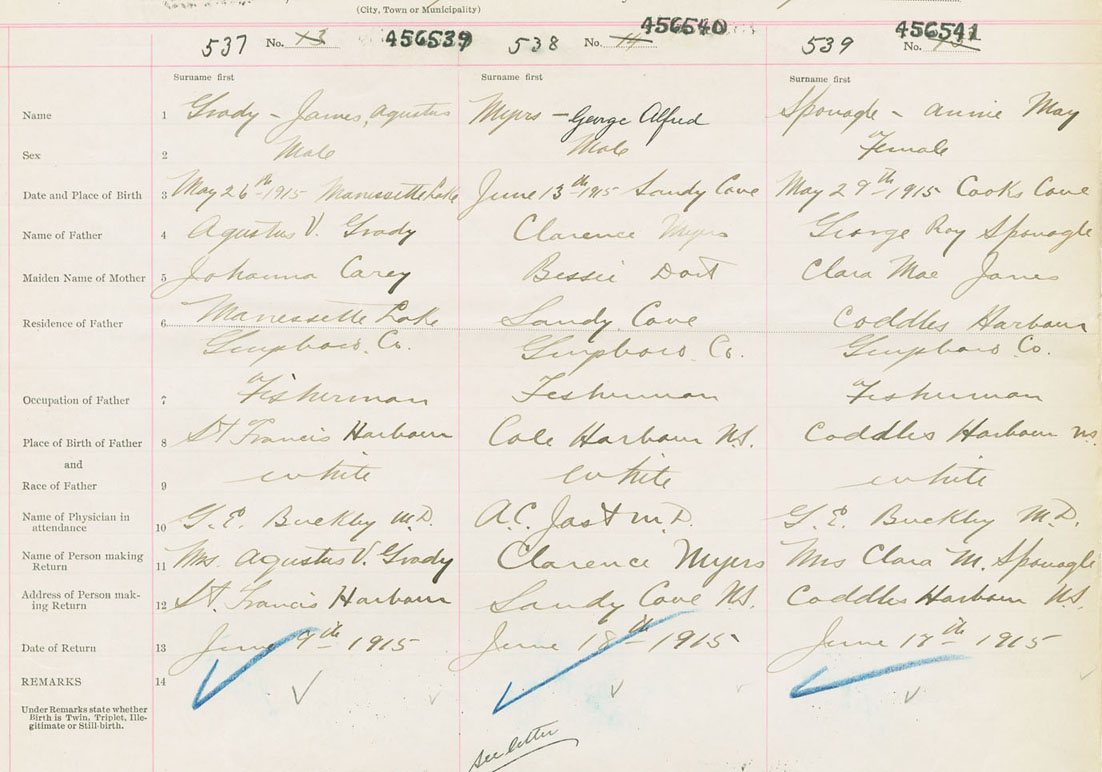 (City, Town or Municipality)
537 No. 13 456539 538 No. 14 456540 539 No. 456541
Surname first Surname first Surname first
Name 1 Grady - James, Agustus Myers - George Alfred Sponagle - Annie May
Sex 2 Male Male Female
Date and Place of Birth 3 May 26th 1915 Manessette Lake June 13th 1915 Sandy Cove May 29th 1915 Cooks Cove
Name of Father 4 Agustus V. Grady Clarence Myers George Roy Sponagle
Maiden Name of Mother 5 Johanna Carey Bessie Dort Clara Mae Jones
Residence of Father 6 Manessette Lake Sandy Cove Coddles Harbour
Guysboro. Co. Guysboro. Co. Guysboro Co.
Occupation of Father 7 Fisherman Fisherman Fisherman
Place of Birth of Father 8 St Francis Harbour Cole Harbour N.S. Coddles Harbour N.S.
and
Race of Father 9 White White White
Name of Physician in attendance 10 G. E. Buckley M.D. A.C. Jost M.D. G. E. Buckley M.D.
Name of Person making Return 11 Mrs. Agustus V. Grady Clarence Myers Mrs Clara M. Sponagle
Address of Person making Return 12 St. Francis Harbour Sandy Cove N.S. Coddles Harbour N.S.
Date of Return 13 June 9th 1915 June 18th 1915 June 17th 1915
REMARKS 14
Under Remarks state whether
Birth is Twin, Triplet, Ille-
gitimate or Still-birth.
see letter